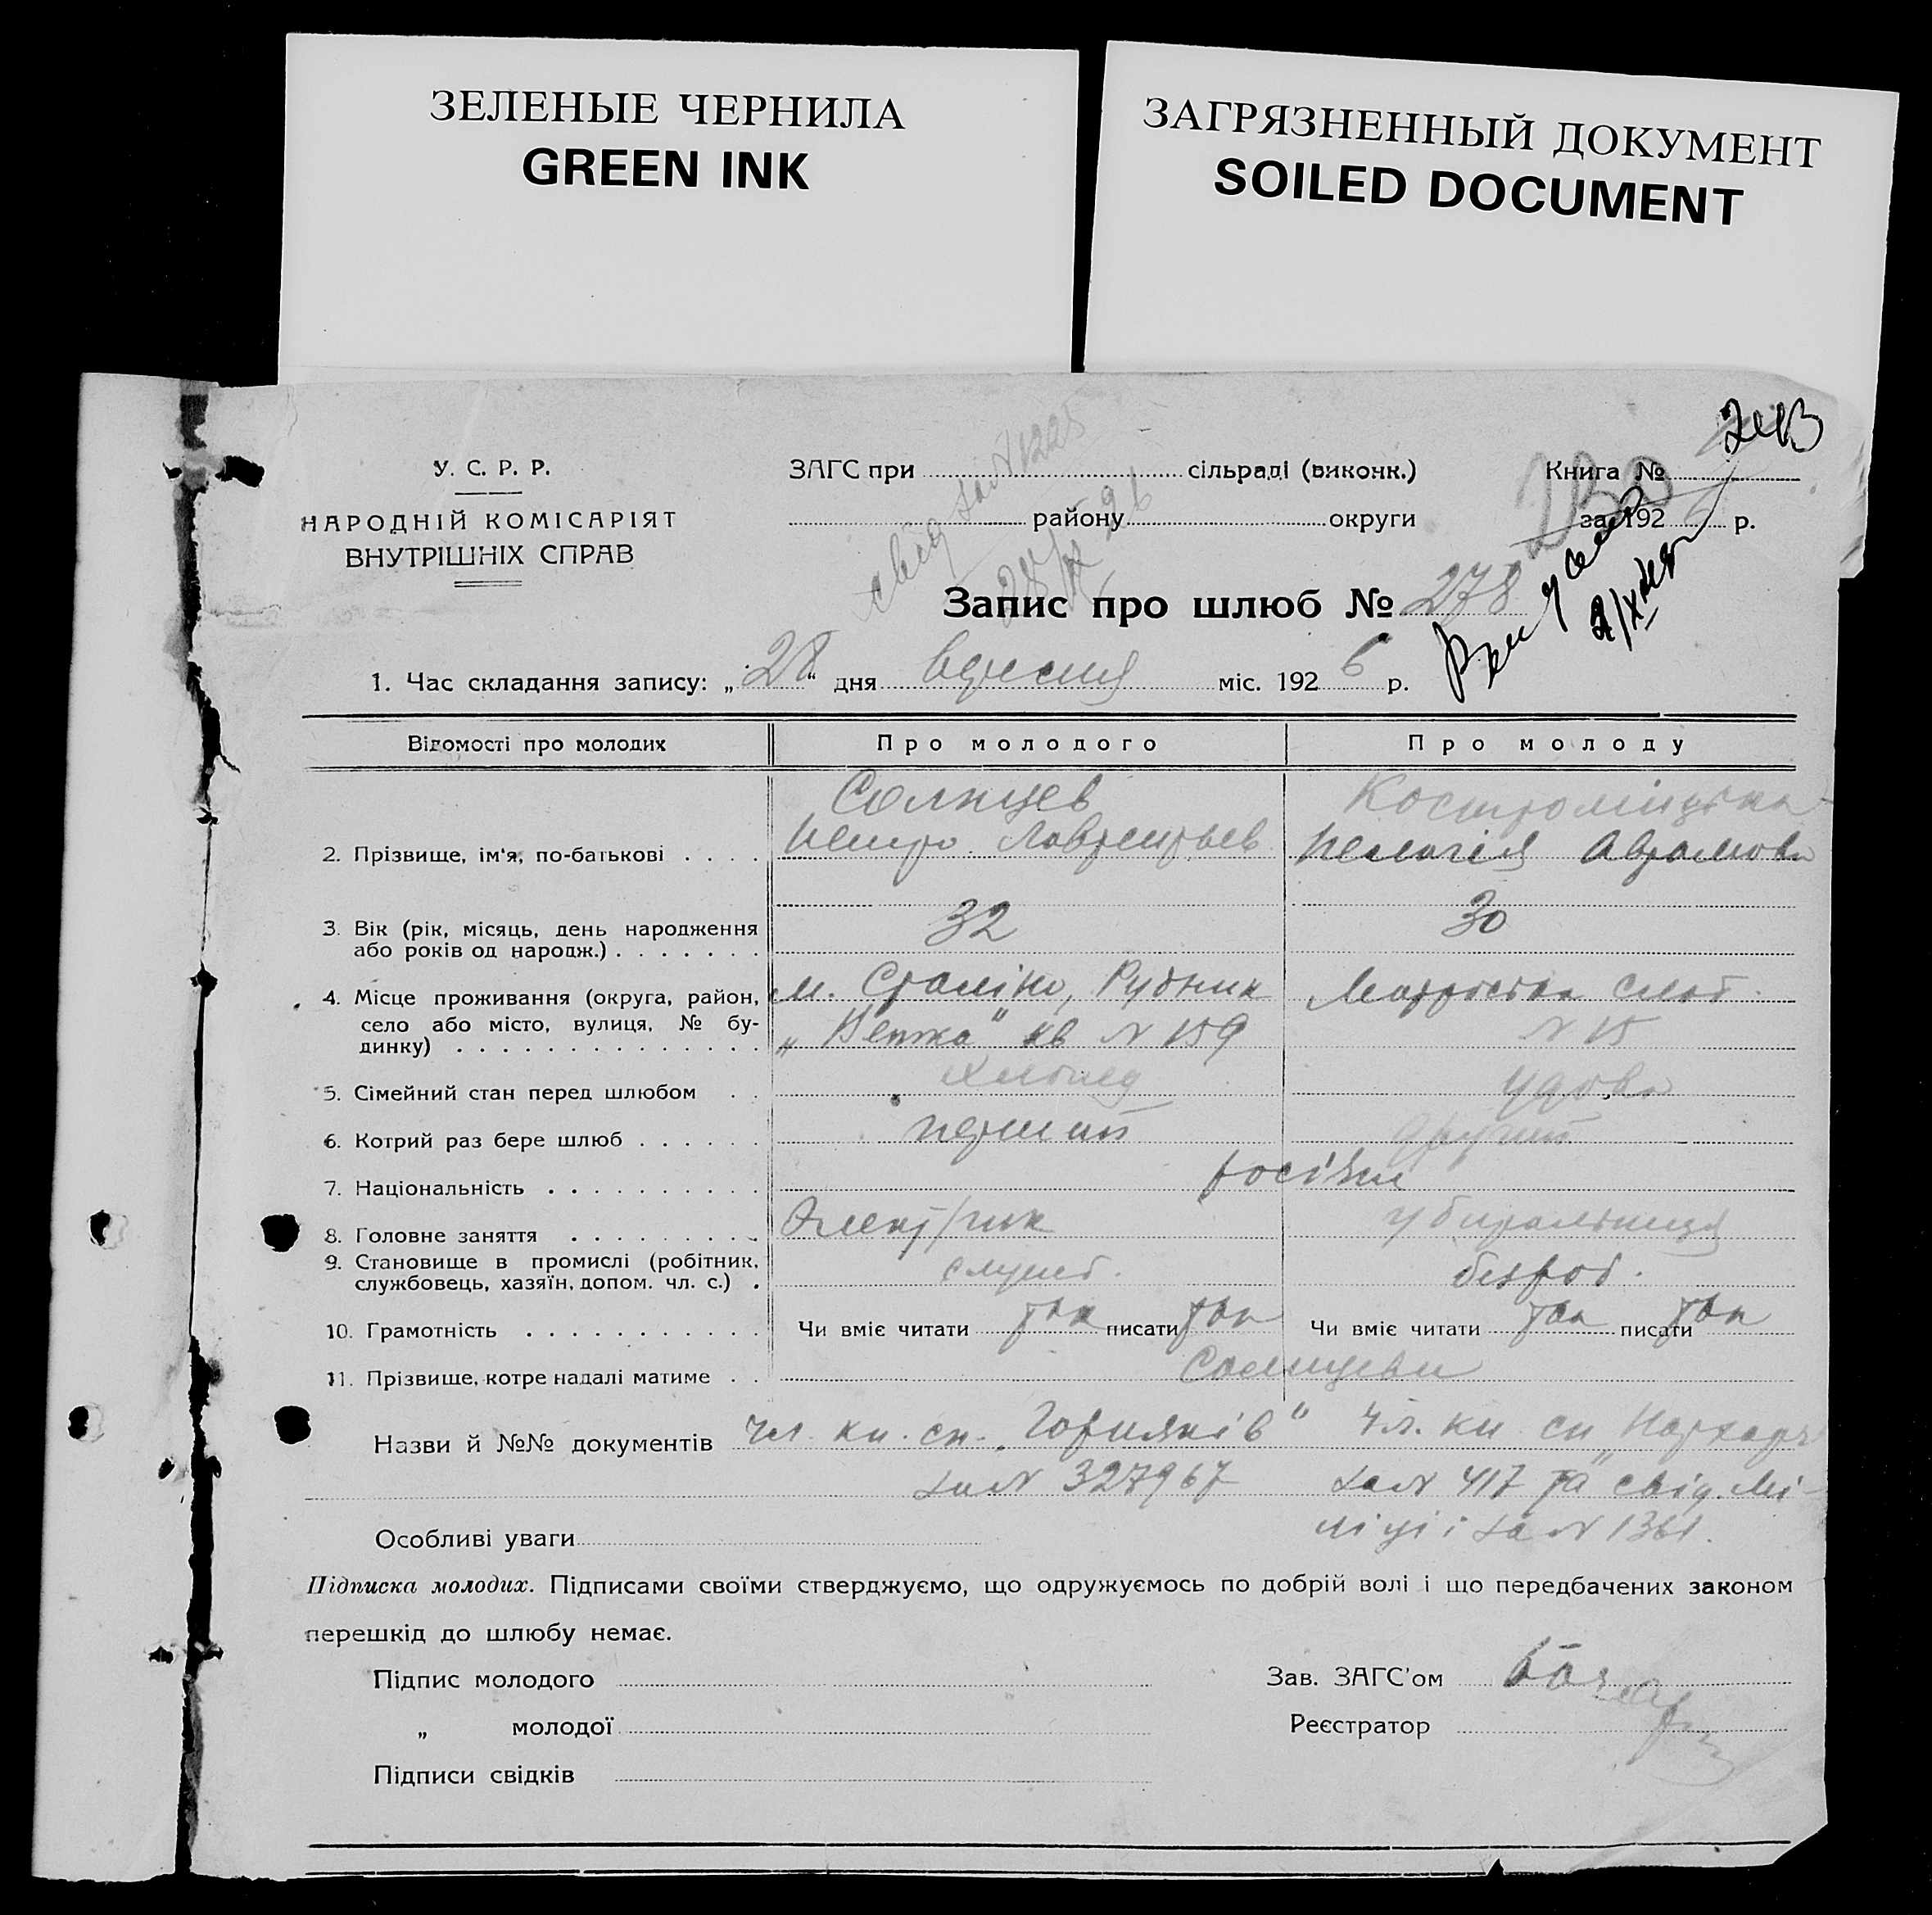 ЗЕЛЕНЫЕ ЧЕРНИЛА
GREEN INK
ЗАГРЯЗНЕННЫЙ ДОКУМЕНТ
SOILED DOCUMENT
У. С. Р. Р.
НАРОДНІЙ КОМІСАРІЯТ
ВНУТРІШНІХ СПРАВ
ЗАГС при сільраді (виконк.)
району округи
Книга №
за 192 р.
свід за № 1225
28/IX 26
Запис про шлюб № 278
1. Час складання запису: „28“ дня вересня міс. 1926 р.
Відомості про молодих Про молодого Про молоду
Солнцев
2. Прізвище, ім'я, по-батькові Петро Лаврентьев Пелагія Аврамовн
3. Вік (рік, місяць, день народження
або років од народж.) 32 30
4. Місце проживання (округа, район, м. Сталіно, Рудник
село або місто, вулиця, № бу-
динку) „Ветка“ кв № 159 № 15
5. Сімейний стан перед шлюбом удова
6. Котрий раз бере шлюб перший другий
7. Національність росіяни
8. Головне заняття Электрик
9. Становище в промислі (робітник,
службовець, хазяїн, допом. чл. с.) служб. безроб.
10. Грамотність Чи вміє читати так писати так Чи вміє читати так писати так
11. Прізвище, котре надалі матиме Солнцеви
Назви й №№ документів чл. кн. сп. „Горняків“ чл. кн сп „Нархарч
за № 327967 за № 417 та свід. Мі-
Особливі уваги ліції за № 1361.
Підписка молодих. Підписами своїми стверджуємо, що одружуємось по добрій волі і що передбачених законом
перешкід до шлюбу немає.
Підпис молодого Зав. ЗАГС'ом
„ молодої Реєстратор
Підписи свідків